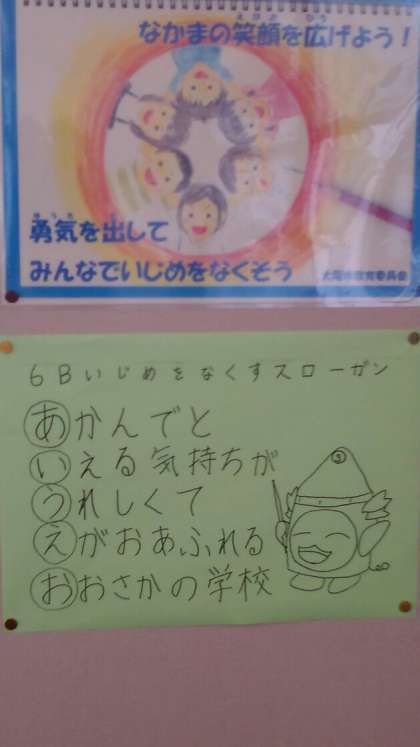 なかまの笑顔を広げよう！
勇気を出して
みんなでいじめをなくそう
6Bいじめをなくすスローガン
あかんでと
いえる気持ちが
うれしくて
えがおあふれる
おおさかの学校